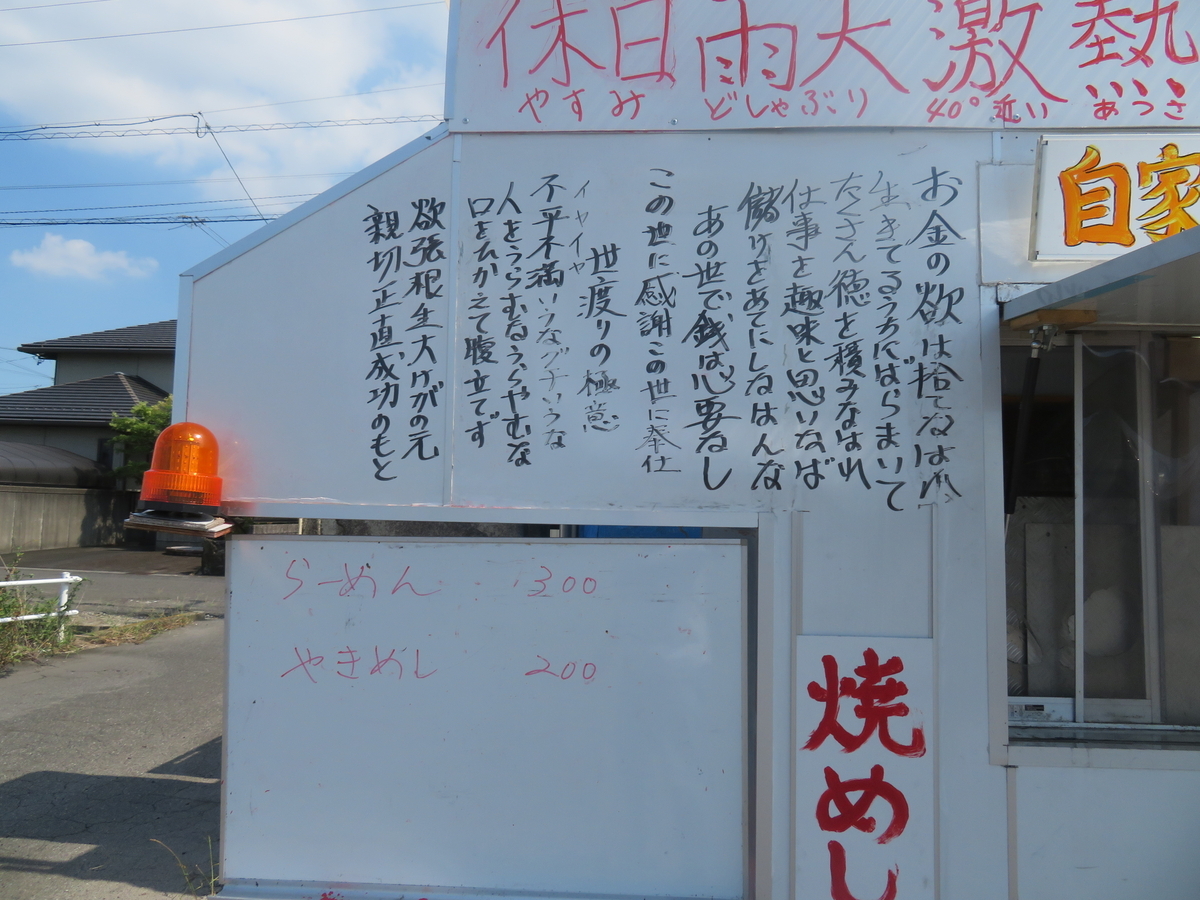 休日雨大激熱
やすみ どしゃぶり 40°近い あつさ
自家
お金の欲は捨てなはれ
生きてるうちにばらまいて
たくさん徳を積みなはれ
仕事を趣味と思いなば
儲けをあてにしなはんな
あの世で銭は必要なし
この世に感謝この世に奉仕
世渡りの極意
イヤイヤ
不平不満いうなグチいうな
人をうらむなうらやむな
口をひかえて腹立てず
欲張根生大けがの元
親切正直成功のもと
らーめん 300
やきめし 200
焼めし